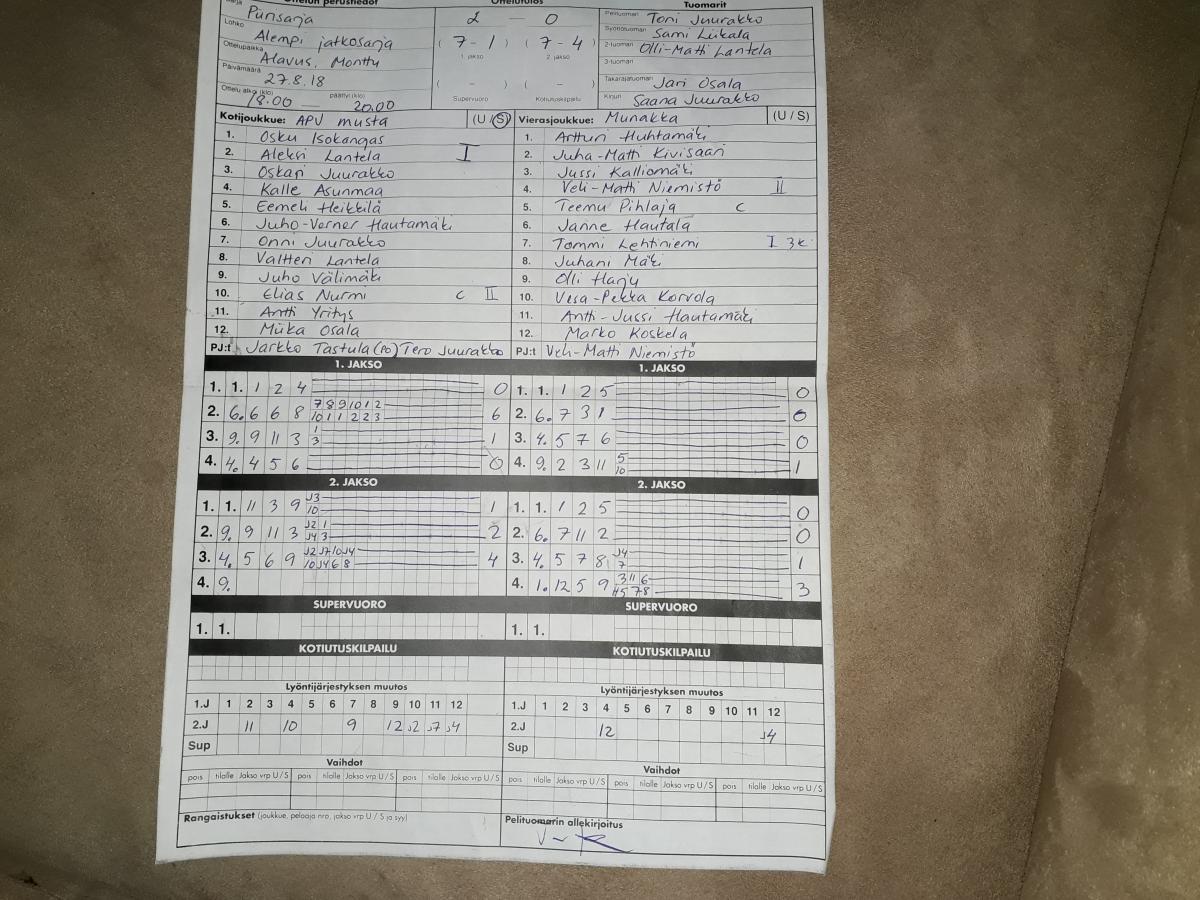 Ottelun perustiedot Ottelutulos Tuomarit
Piirisarja 2 – 0 Pelituomari Toni Juurakko
Lohko Alempi jatkosarja ( 7 - 1 ) ( 7 - 4 ) Syöttötuomari Sami Liikala
Ottelupaikka Alavus, Monttu 1. jakso 2. jakso 2-tuomari Olli-Matti Lantela
Päivämäärä 27.8.18 ( - ) ( - ) 3-tuomari
Ottelu alkoi (klo) 18.00 — päättyi (klo) 20.00 Supervuoro Kotiutuskilpailu Takarajatuomari Jari Osala
Kirjuri Saana Juurakko
Kotijoukkue: APV musta (U / S) Vierasjoukkue: Munakka (U / S)
1. Osku Isokangas 1. Artturi Huhtamäki
2. Aleksi Lantela I 2. Juha-Matti Kivisaari
3. Oskari Juurakko 3. Jussi Kalliomäki
4. Kalle Asunmaa 4. Veli-Matti Niemistö II
5. Eemeli Heikkilä 5. Teemu Pihlaja C
6. Juho-Verner Hautamäki 6. Janne Hautala
7. Onni Juurakko 7. Tommi Lehtiniemi I 3k
8. Valtteri Lantela 8. Juhani Mäki
9. Juho Välimäki 9. Olli Harju
10. Elias Nurmi C II 10. Vesa-Pekka Korvola
11. Antti Yritys 11. Antti-Jussi Hautamäki
12. Miika Osala 12. Marko Koskela
PJ:t Jarkko Tastula (PO) Tero Juurakko PJ:t Veli-Matti Niemistö
1. JAKSO 1. JAKSO
1. 1. 1 2 4 0 1. 1. 1 2 5 0
2. 6. 6 6 8 7 8 9 10 1 2 10 1 1 2 2 3 6 2. 6. 7 3 1 0
3. 9. 9 11 3 1 3 1 3. 4. 5 7 6 0
4. 4. 4 5 6 0 4. 9. 2 3 11 5 10 1
2. JAKSO 2. JAKSO
1. 1. 11 3 9 J3 10 1 1. 1. 1 2 5 0
2. 9. 9 11 3 J2 1 J4 3 2 2. 6. 7 11 2 0
3. 4. 5 6 9 J2 J7 10 J4 10 J4 6 8 4 3. 4. 5 7 8 J4 7 1
4. 9. 4. 1. 12 5 9 3 11 6 J4 5 7 8 3
SUPERVUORO SUPERVUORO
1. 1. 1. 1.
KOTIUTUSKILPAILU KOTIUTUSKILPAILU
Lyöntijärjestyksen muutos Lyöntijärjestyksen muutos
1.J 1 2 3 4 5 6 7 8 9 10 11 12 1.J 1 2 3 4 5 6 7 8 9 10 11 12
2.J 11 10 9 12 J2 J7 J4 2.J 12 J4
Sup Sup
Vaihdot Vaihdot
pois tilalle Jakso vrp U / S pois tilalle Jakso vrp U / S pois tilalle Jakso vrp U / S pois tilalle Jakso vrp U / S pois tilalle Jakso vrp U / S pois tilalle Jakso vrp U / S
Rangaistukset (joukkue, pelaaja nro, jakso vrp U / S ja syy) Pelituomarin allekirjoitus